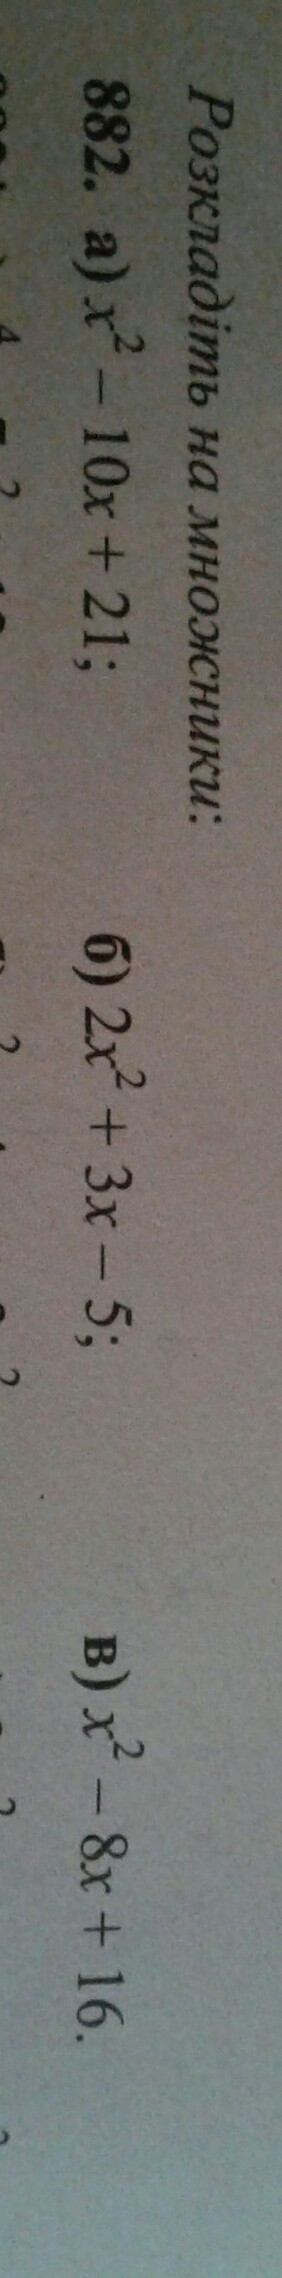 Розкладіть на множники:
882. а) x² – 10x + 21; б) 2x² + 3x – 5; в) x² – 8x + 16.